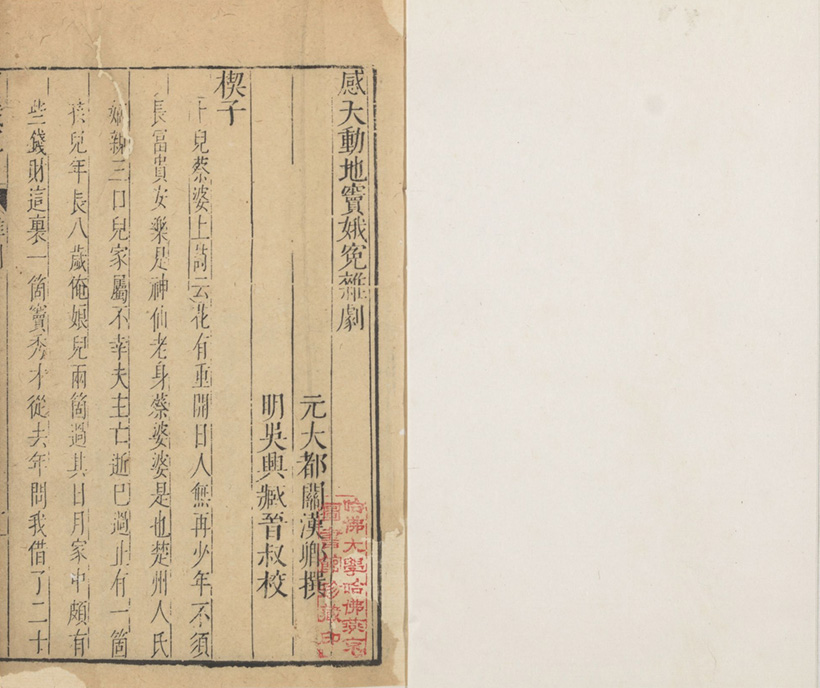 感天動地竇娥冤雜劇
元大都關漢卿撰
明吳興臧晉叔校
楔子
卜兒蔡婆上詩云花有重開日人無再少年不須
長富貴安樂是神仙老身蔡婆婆是也楚州人氏
嫡親三口兒家屬不幸夫主亡逝已過止有一箇
孩兒年長八歲俺娘兒兩箇過其日月家中頗有
些錢財這裏一箇竇秀才從去年問我借了二十
哈佛大學哈佛燕京
圖書館珍藏印